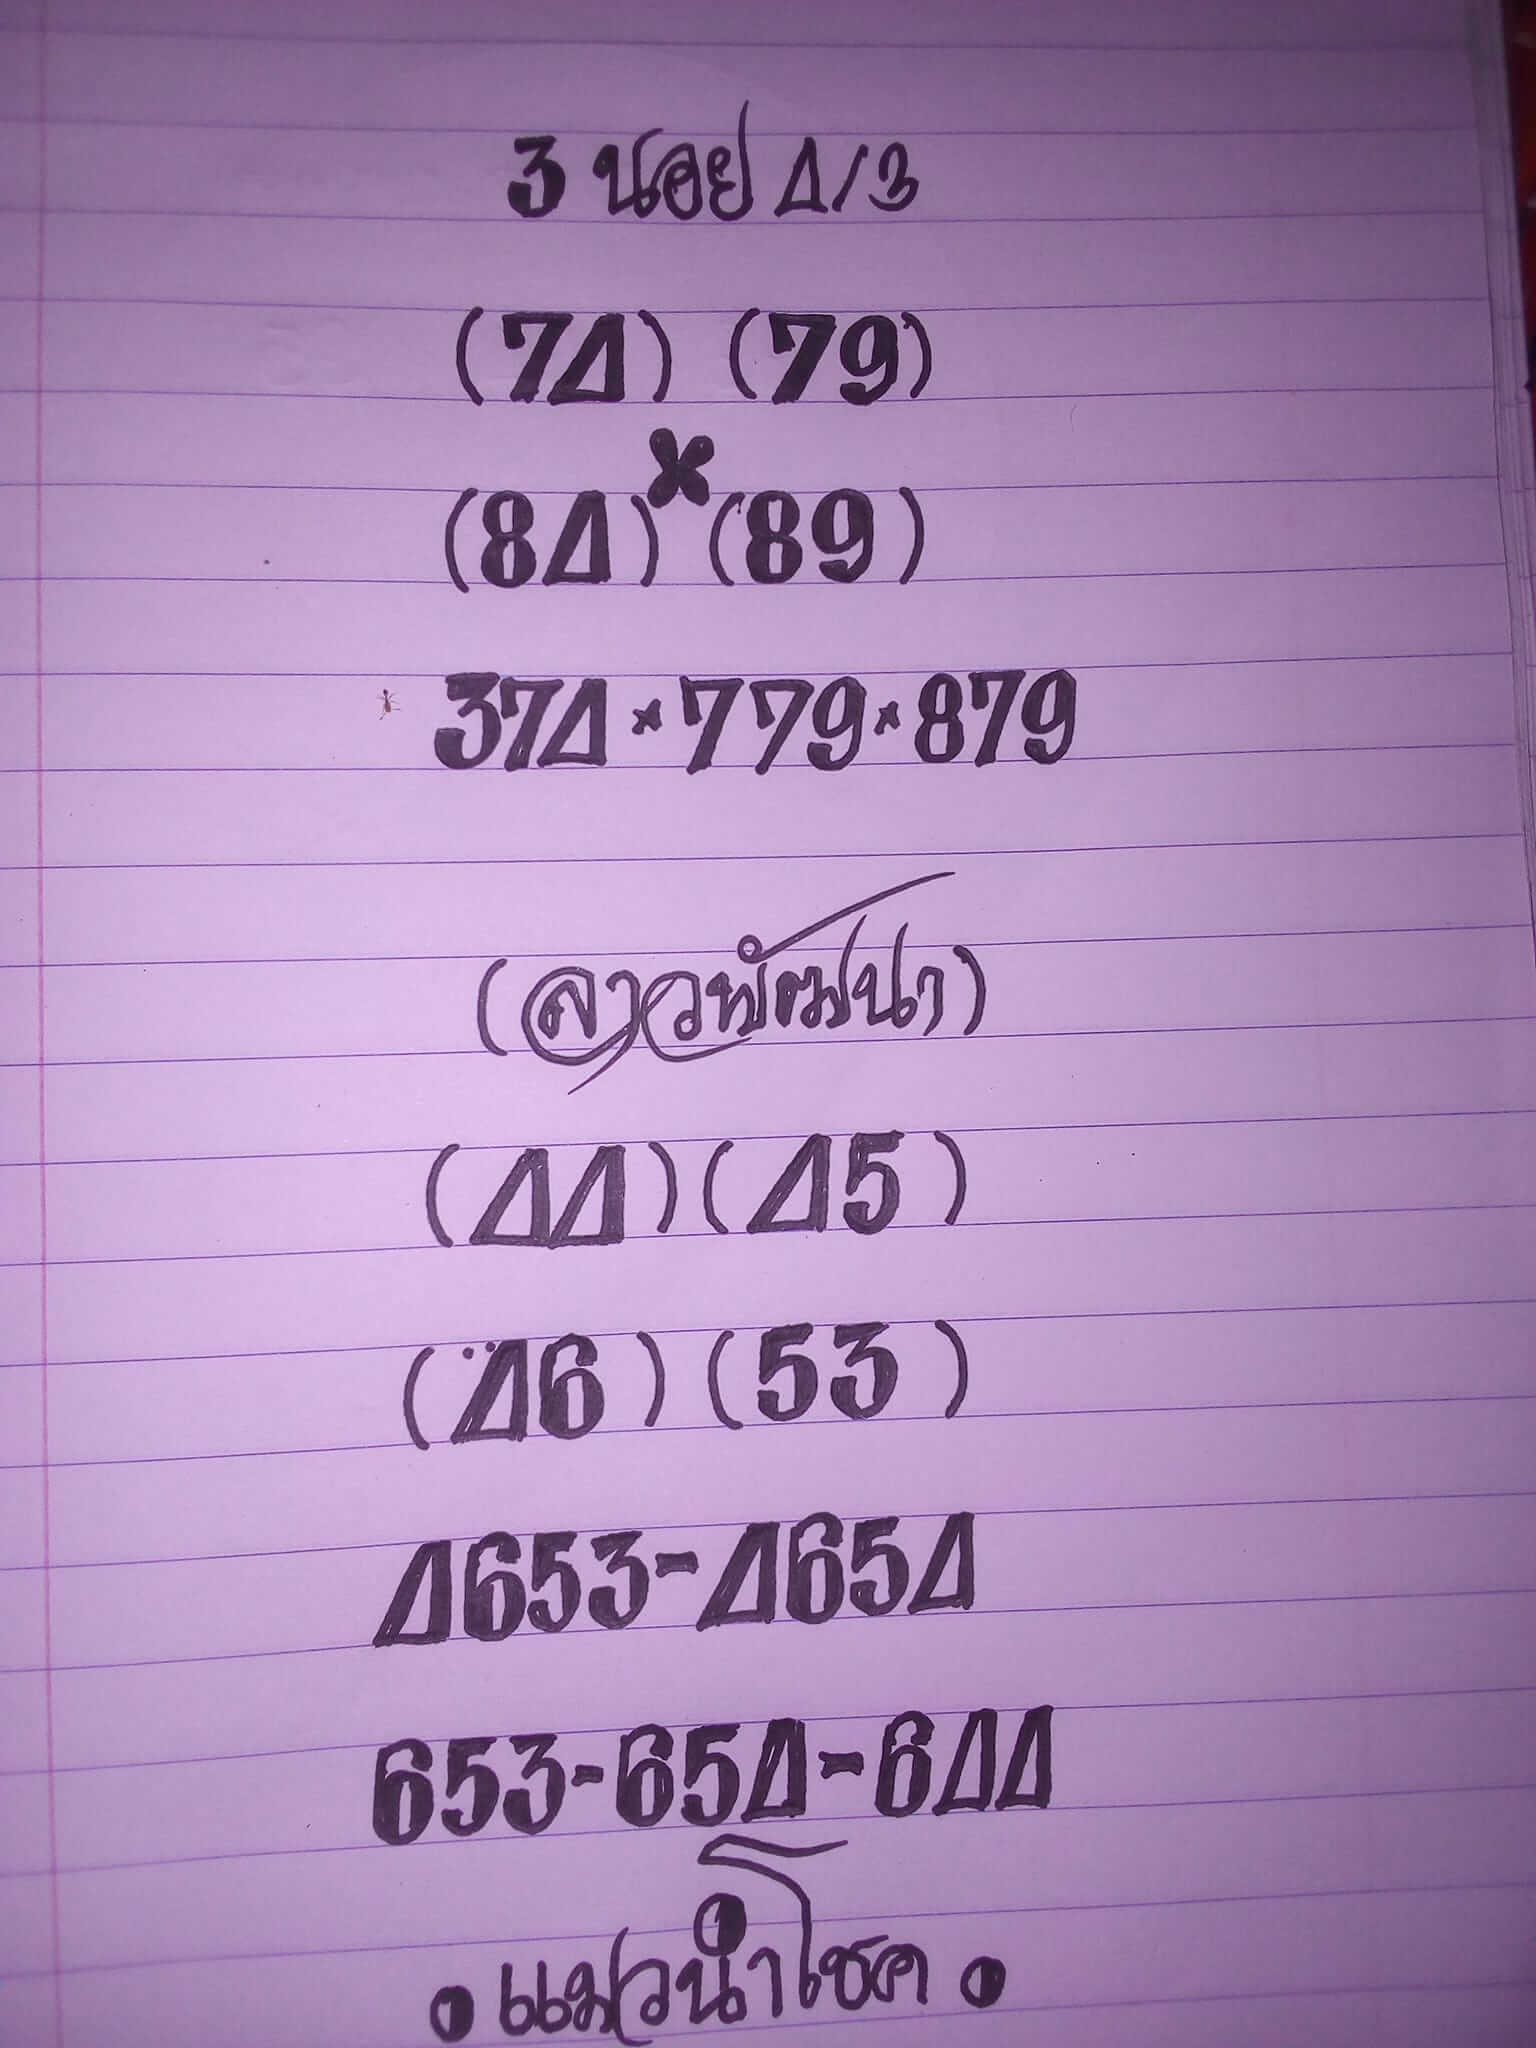 3 นอย 4/3
(74) (79)
x
(84) (89)
374×779×879
(ลาวพัฒนา)
(44)(45)
(46)(53)
4653-4654
653-654-644
•แมวนำโชค•